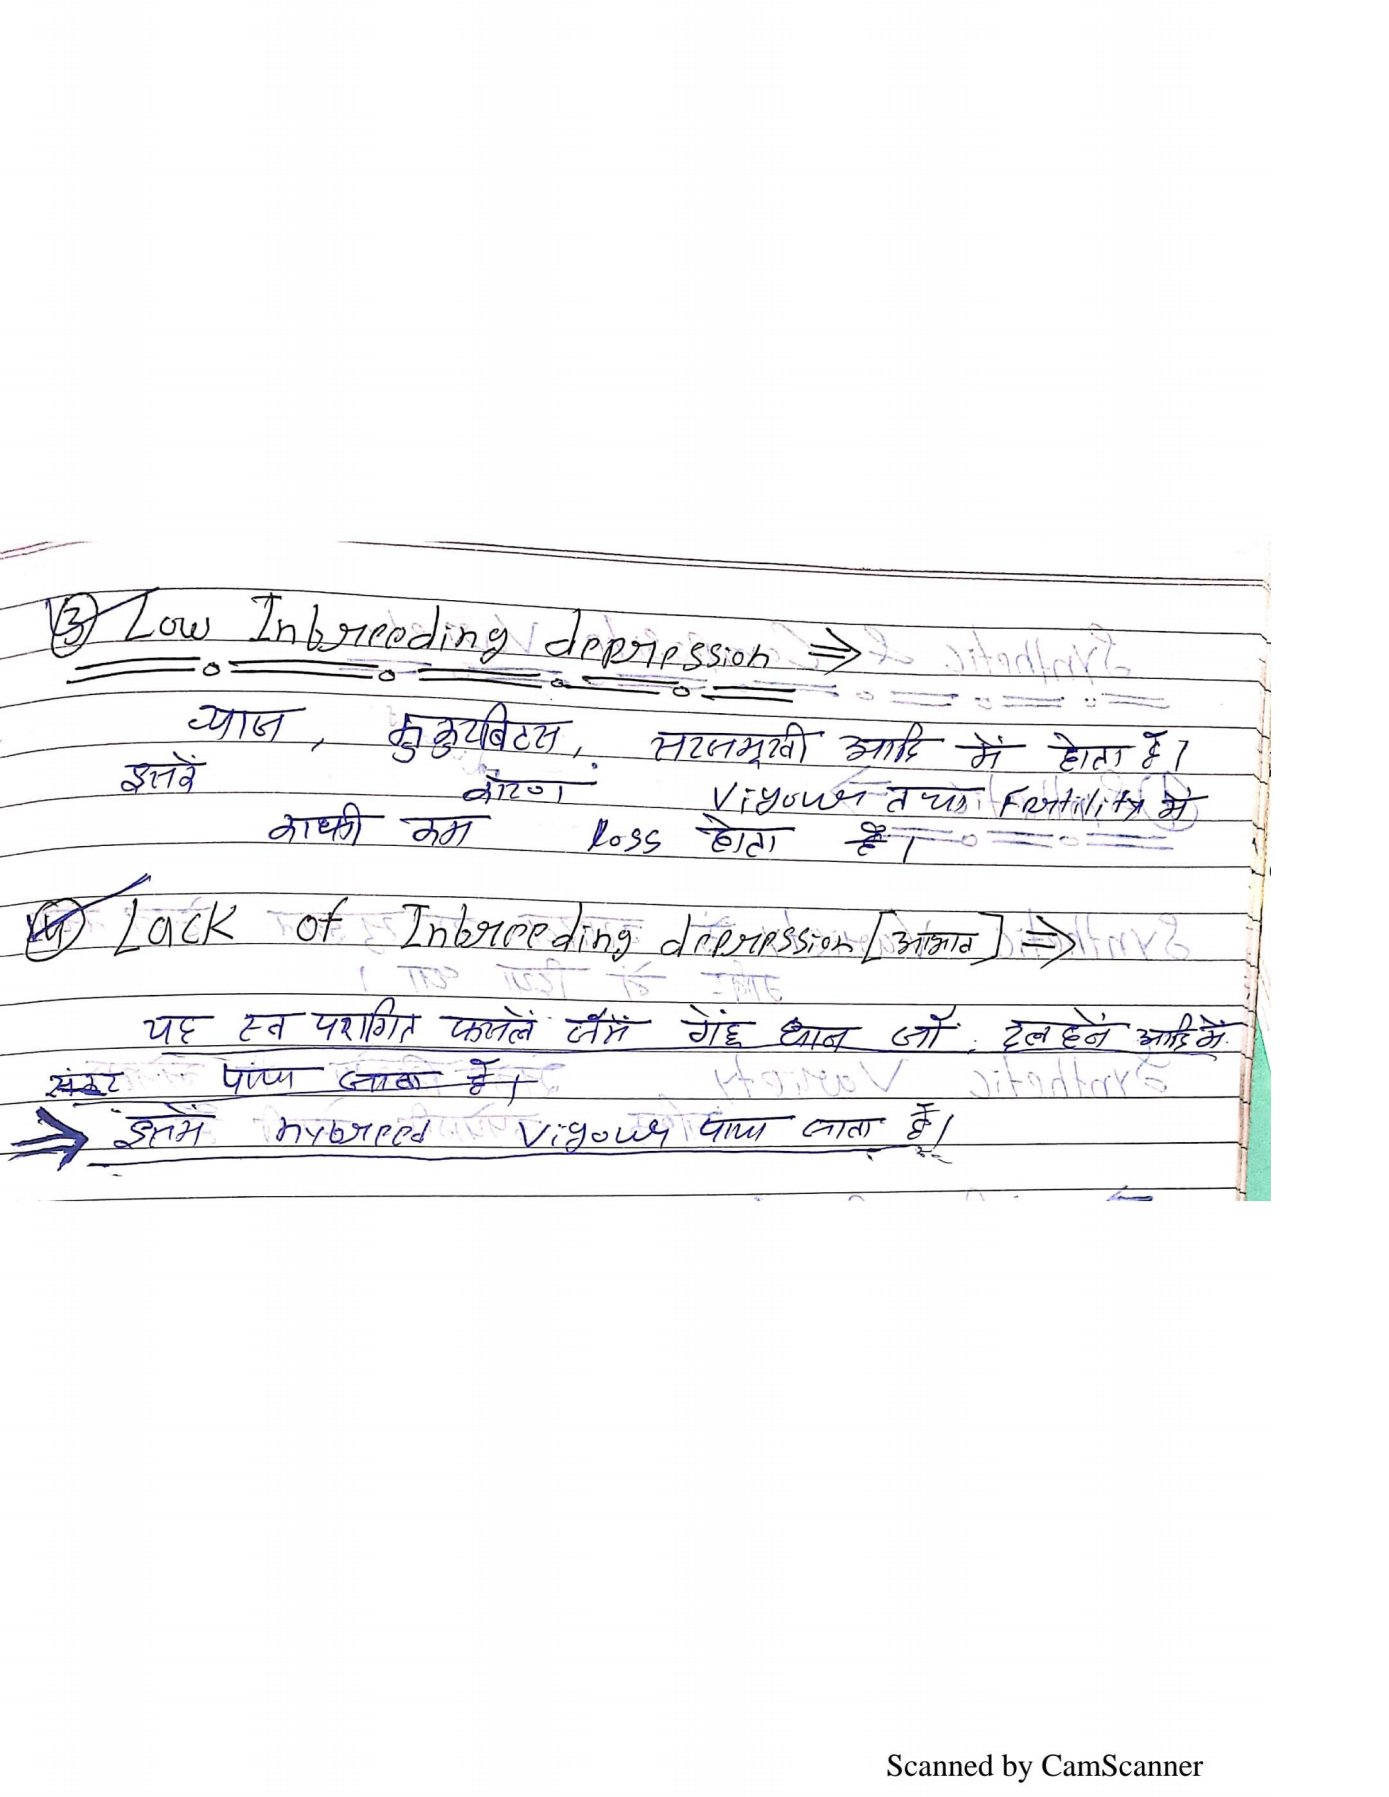 ③ Low Inbreeding depression ⇒
प्याज, कुकुरबिटस, सरजमूखी आदि में होता है।
इसके कारण Vigour तथा Fertility में
काफी कम loss होता है।
④ Lack of Inbreeding depression [अभाव] ⇒
यह स्व परागित फसलें जैसे गेंहू धान जौ, दलहनें आदि में
पाया जाता है।
⇒ इसमें hybreed Vigour पाया जाता है।
Scanned by CamScanner